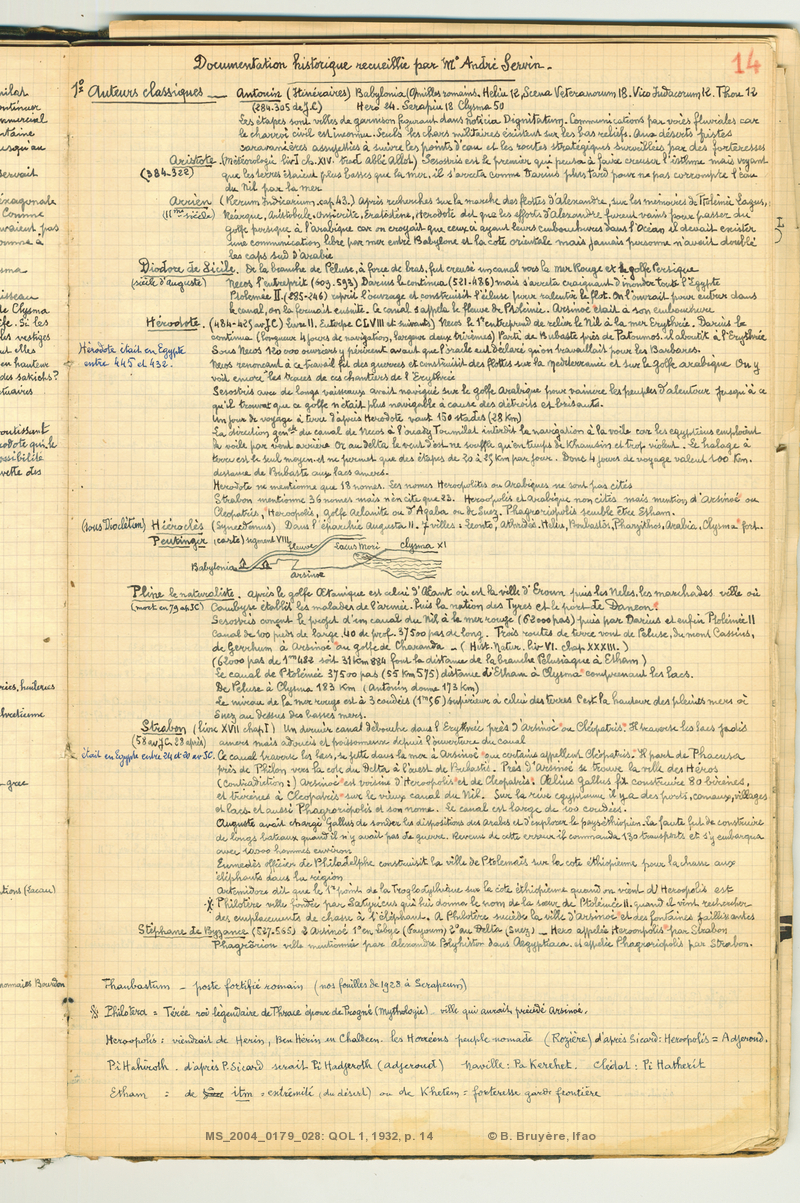 Documentation historique recueillie par Mr André Servin.
14
1° Auteurs classiques _ Antonin (Itinéraires) Babylonia (Milles romains. Heliu 12, Scena Veteranorum 18. Vico Judacorum 12. Thou 12
(284-305 de J.C) Hero 24. Serapiu 18 Clysma 50
Les étapes sont villes de garnison figurant dans noticia Dignitatum. Communications par voies fluviales car
le charroi civil est inconnu. Seuls les chars militaires existent sur les bas reliefs. Aux déserts pistes
caravanières assujetties à suivre les points d'eau et les routes stratégiques surveillées par des forteresses
Aristote (Météorologie liv I ch. XIV. trad abbé Allot) Sesostris est le premier qui pensa à faire creuser l'isthme mais voyant
(384-322) que les terres étaient plus basses que la mer, il s'arreta comme Darius plus tard pour ne pas corrompre l'eau
du Nil par la mer
Arrien (Rerum Indicarum. cap 43.) Après recherches sur la marche des flottes d'Alexandre, sur les mémoires de Ptolémée Lagus,
(IIme siècle) Néarque, Aristobule, Onésicrite, Eratostène, Herodote dit que les efforts d'Alexandre furent vains pour passer du
golfe persique à l'Arabique car on croyait que ceux-ci ayant leurs embouchures dans l'Océan il devait exister
une communication libre par mer entre Babylone et la cote orientale mais jamais personne n'avait doublé
les caps sud d'Arabie
Diodore de Sicile. De la branche de Péluse, à force de bras, fut creusé un canal vers la mer Rouge et le golfe Persique
(siècle d'auguste) Necos l'entreprit (609.593) Darius le continua (521-486) mais s'arreta craignant d'inonder toute l'Egypte
Ptolemée II. (285-246) reprit l'ouvrage et construisit l'écluse pour ralentir le flot. On l'ouvrait pour entrer dans
le canal, on la fermait ensuite. Ce canal s'appela le fleuve de Ptolémée. Arsinoé était à son embouchure
Hérodote. (484-425 av JC) Livre II. Euterpe CLVIII et suivants) Necos le 1er entreprend de relier le Nil à la mer Erythrée. Darius la
continua (longueur 4 jours de navigation, largeur deux trirèmes) Parti de Bubaste près de Patoumos. il aboutit à l'Erythrée
Hérodote était en Egypte
entre 445 et 432.
Sous Necos 120 000 ouvriers y périrent avant que l'oracle eut déclaré qu'on travaillait pour les Barbares.
Necos renonçant à ce travail fit des guerres et construisit des flottes sur la mediterranée et sur le golfe arabique On y
voit encore les traces de ces chantiers de l'Erythrée
Sesostris avec de longs vaisseaux avait navigué sur le golfe Arabique pour vaincre les peuples d'alentour jusqu'à ce
qu'il trouvat que ce golfe n'était plus navigable à cause des détroits et brisants.
Un jour de voyage à terre d'après Herodote vaut 150 stades (28 Km)
La direction gnle du canal de Necos à l'ouady Toumilat interdit la navigation à la voile car les egyptiens emploient
la voile par vent arrière Or au Delta le vent d'est ne souffle qu'en temps de Khamsin et trop violent. Le halage à
terre est le seul moyen et ne permet que des étapes de 20 à 25 Km par jour. Donc 4 jours de voyage valent 100 Km.
distance de Bubaste aux lacs amers.
Herodote ne mentionne que 18 nomes. Les nomes Heropolites ou Arabiques ne sont pas cités
Strabon mentionne 36 nomes mais n'en cite que 23. Heropolis et Arabique non cités mais mention d'Arsinoé ou
Cleopatris, Heroopolis, Golfe Aelanite ou d'Aqaba ou de Suez. Phagroriopolis semble être Etham.
(sous Dioclétien) Hiéroclès (Synecdèmus) Dans l'éparchie Augusta II. 7 villes: Leonto, Athribis, Heliu, Bonbastos, Pharbitos, Arabia, Clysma* fort.
Peutinger (carte) segment VIII fleuve Lacus Mori Clysma XI
Babylonia
arsinoe
Pline le naturaliste. après le golfe Ælanique est celui d'Æant où est la ville d'Eroum puis les Neles, les marchades ville où
(mort en 79 ap JC) Cambyse établit les malades de l'armée. Puis la nation des Tyres et le port de Daneon*.
Sesostris conçut le projet d'un canal du Nil à la mer rouge (62000 pas) puis par Darius et enfin Ptolémée II
Canal de 100 pieds de large. 40 de prof. 37500 pas de long. Trois routes de terre vont de Peluse, du mont Cassius,
de Gerrhum à Arsinoé* au golfe de Charanda - (Hist. Natur. liv VI. chap XXXIII.)
(62000 pas de 1m 482 soit 91 Km 884 font la distance de la branche Pelusiaque à Etham)
le canal de Ptolémée 37500 pas (55 Km 575) distance d'Etham à Clysma* comprenant les lacs.
De Péluse à Clysma 183 Km (Antonin donne 173 Km)
Le niveau de la mer rouge est à 3 coudées (1m 56) supérieur à celui des terres C'est la hauteur des pleines mers à
Suez au dessus des basses mers.
Strabon (livre XVII chap I) Un dernier canal débouche dans l'Erythrée près d'Arsinoé* ou Cléopatris*. Il traverse les lacs jadis
(58 av J.C. 29 après) amers mais adoucis et poissonneux depuis l'ouverture du canal
était en Egypte entre 24 et 20 av JC. Ce canal traverse les lacs, se jette dans la mer à Arsinoé* ou certains appellent Cléopatris*. Il part de Phacusa
près de Philon vers la cote du Delta à l'ouest de Bubastis. Près d'Arsinoé se trouve la ville des Héros
(Contradiction:) Arsinoé* est voisine d'Heroopolis* et de Cleopatris*. Ælius Gallus fit construire 80 birènes,
et trirèmes à Cleopatris* sur le vieux canal du Nil. Sur la rive egyptienne il y a des ports, canaux, villages
et lacs et aussi Phagroriopolis et son nome. le canal est large de 100 coudées.
Auguste avait chargé Gallus de sonder les dispositions des Arabes et d'explorer le pays éthiopien. La faute fut de construire
de longs bateaux quand il n'y avait pas de guerre. Revenu de cette erreur il commanda 130 transports et s'y embarqua
avec 10000 hommes environ
Eumedès officier de Philadelphe construisit la ville de Ptolemaïs sur la cote éthiopienne pour la chasse aux
éléphants dans la région
Artemidore dit que le 1er point de la Troglodythique sur la côte éthiopienne quand on vient d'Heropolis est
Philotère ville fondée par Satyricus qui lui donne le nom de la sœur de Ptolémée II. quand il vint rechercher
des emplacements de chasse à l'éléphant. A Philotère succède la ville d'Arsinoé* et des fontaines jaillissantes
Stéphane de Byzance (527.565) 2 Arsinoé 1° en Libye (Fayoum) 2° au Delta (Suez) _ Hero appelée Heroonpolis* par Strabon
Phagrorion ville mentionnée par Alexandre Polyhistor dans Aegyptiaca. et appelée Phagroriopolis par Strabon.
Thaubastum _ poste fortifié romain (nos fouilles de 1928 à Serapeum)
Philotera = Térée roi légendaire de Thrace époux de Progné (Mythologie) _ ville qui aurait précédé Arsinoé,
Heroopolis: viendrait de Herin, Ben Hérin en Chaldéen. les Horréens peuple nomade (Rozière) d'après Sicard: Heroopolis = Adjeroud.
Pi Hahiroth. d'après P. Sicard serait Pi Hadjeroth (adjerouet) Naville: Pa Kerehet. Clédat: Pi Hatherit
Etham = de itm = extrémité (du désert) ou de Khetem = forteresse garde frontière
MS_2004_0179_028: QOL 1, 1932, p. 14 © B. Bruyère, Ifao